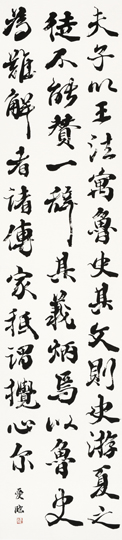 夫子以王法寓魯史其文則史游夏之
徒不能贊一辭其義炳焉以魯史
為難解者諸傳家祇謂攪心尔